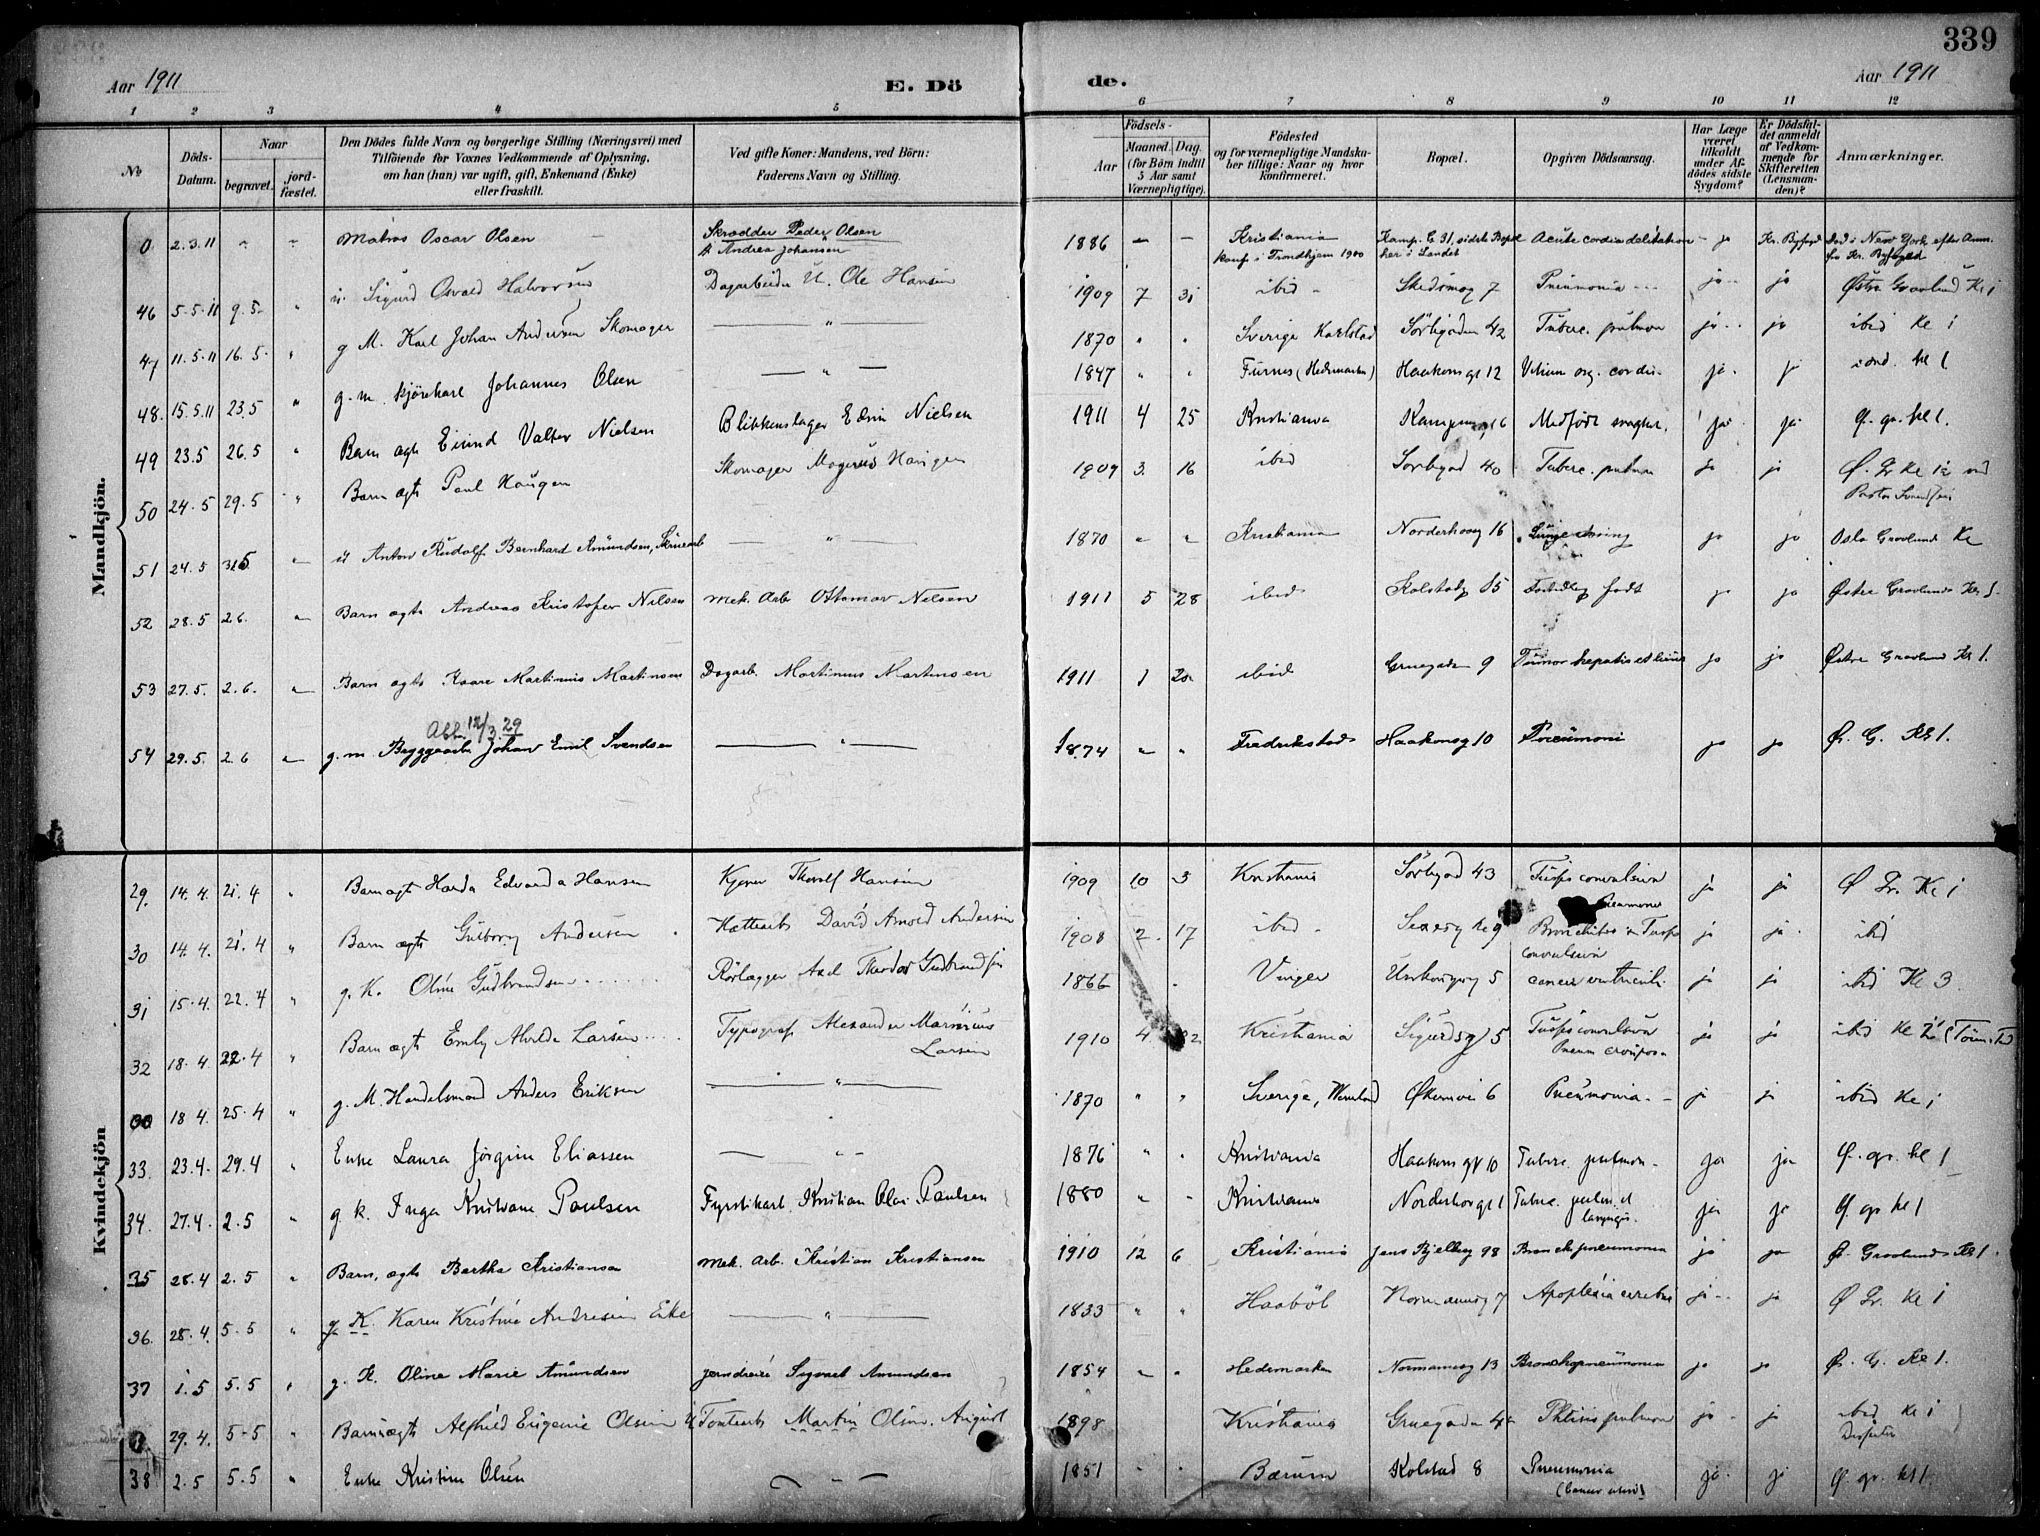 339
Aar 1911
E. Dö
de.
Aar 1911
1 2 3 4 5 6 7 8 9 10 11 12
No
Döds-Datum.
Naar
begravet.
jord-fæstet.
Den Dödes fulde Navn og borgerlige Stilling (Næringsvei) med
Tilföiende for Voxnes Vedkommende af Oplysning,
om han (hun) var ugift, gift, Enkemand (Enke)
eller fraskilt.
Ved gifte Koner: Mandens, ved Börn:
Faderens Navn og Stilling.
Födsels-
Aar
Maaned. Dag.
(for Börn indtil
5 Aar samt
Værnepligtige).
Födested
og for værnepligtige Mandskaber tillige: Naar og hvor
konfirmeret.
Bopæl.
Opgiven Dödsaarsag.
Har Læge været tilkaldt under Afdödes sidste Sygdom?
Er Dödsfaldet anmeldt af Vedkommende for Skifteretten (Lensmanden)?
Anmærkninger.
Mandkjön.
0 2.3.11 " " Matros Oscar Olsen — Skrædder Peder Olsen 1886 — — Kristiania Kamp. G. 31, sidste Bopæl Acute cordia delitation - ja Kr. Byfoged Död i New York efter Anm.
& Andrea Johansen konf. i Trondhjem 1900 her i Landet fra Kr. Byfoged
46 5.5.11 9.5 " u. Sigurd Osvald Halvorsen Dagarbeider U. Ole Hansen 1909 7 31 ibid - Skedsmog 7 Pneumonia ja ja Østre Gravlund Kl 1
47 11.5.11 16.5 " g M. Karl Johan Andersen Skomager — " — 1870 " " Sverige Karlstad Sörligaden 42 Tuberc. pulmon ja ja ibid Kl 1
48. 15.5.11 23.5 " g. m. kjörekarl Johannes Olsen — " — 1847 " " Furnes (Hedemarken) Haakons gt 12 Vitium org. cordis. ja ja ibid. kl 1
49 23.5 26.5 " Barn ægte Eivind Valter Nielsen Blikkenslager Edvin Nielsen 1911 4 25 Kristiania Kampeng 16 Medfödt svaghet. ja ja Ø. gr. kl 1.
50 24.5 29.5 " Barn ægte Paul Haugen Skomager Magnus Haugen 1909 3. 16 ibid Sörligad 40 Tuberc. pulmon ja ja Ø. Gr Kl 1 ved
Pastor Svendsen
51 24.5 31.5 " u Anton Rudolf Bernhard Amundsen, Skurarb — " — 1870 " " Kristiania Norderhovg 16 Lunge ja ja Oslo Gravlund Kl
52 28.5 2.6. " Barn ægte Andreas Kristofer Nilsen Mek. Arb. Ottomar Nilsen 1911 5 28 ibid Kolstadg 15 Fortidlig födt ja ja Østre Gravlunds Kl 1.
53 27.5. 2.6. " Barn ægte Kaare Martinus Martinsen Dagarb. Martinus Martinsen 1911 1 20 ibid Gruegaden 9 Tumor hepatis et lienis ja ja Østre Gravlund Kl 1.
Abh. 12/3.29
54 29.5. 2.6 " g. m. Bryggearb Johan Emil Svendsen — " — 1874 " " Fredrikstad Haakonsg 10 Pneumoni ja ja Ør. G. Kl 1.
Kvindekjön
29. 14.4. 21.4 " Barn ægt Harda Edvarda Hansen Kjörer Thorolf Hansen 1909 10 3 Kristiania Sörligad 43 Tussis convulsiva ja ja Ø Gr. Kl 1
Pneumonia
30 14.4. 21.4 " Barn ægte Gulborg Andersen Hattearb David Arnold Andersen 1908 2. 17 ibid - Bronchitis & Tussis ja ja ibid
convulsiva
31 15.4. 22.4 " g. K. Oline Gudbrandsen Rörlægger Axel Theodor Gudbrandsen 1866 " Vinger 5 cancer ventriculi. ja ja ibid Kl 3
32 18.4. 22.4 " Barn ægt Emly Alvilde Larsen Typograf Alexander Marinius 1910 4 Kristiania Sigurdsg 5 Tussis convulsiva ja ja ibid kl 2
Larsen Pneum crouposa
18.4. 25.4 " g. M. Handelsmand Anders Eriksen — " — 1870 " " Sverige, Wermland Økernvei 6 Pneumonia ja ja ibid Kl 1
33. 23.4. 29.4 " Enke Laura Jörgine Eliassen — " — 1876 " " Kristiania Haakons gt 10 Tuberc. pulmon. ja ja Ø. gr. kl 1
34. 27.4. 2.5 " g. k. Inga Kristiane Paulsen Fyrstikarb. Kristian Olai Paulsen 1880 " " Kristiania Norderhovgt 1 Tuberc. pulm et ja ja Ø. gr kl 1
laryngis.
35 28.4 2.5 " Barn, ægte Bertha Kristiansen Mek. Arb. Kristian Kristiansen 1910 12 6 Kristiania Jens Bjelkesg 98 Bronchpneumonia ja ja Ø. Gravlunds Kl 1.
36. 28.4. 5.5 " g. K. Karen Kristine Andresen Enke — " — 1833 " " Haaböl Normannsg 7 Apoplexia cerebri ja ja Ø Gr. Kl 1
37 1.5 5.5 " g. K. Oline Marie Amundsen Jerndreier Sigvart Amundsen 1854 " " Hedemarken Normannsg 13 Bronchopneumonia ja ja Ør. G. Kl 1.
29.4. 5-5 " Barn ægt Alfhild Eugenie Olsen Martin Olsen. August 1898 Kristiania Gruegaden Phtisis pulmon ja ja ibid Kl 1
38 2.5 5.5 " Enke Kristine Olsen — " — 1851 " " Bærum Kolstad 8 Pneumonia ja. ja Ø. gr. kl 1.
(Cancer uteri)